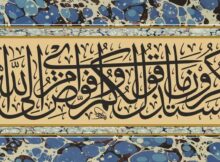 ما أقول لكم وأفوض أمري إلى الله